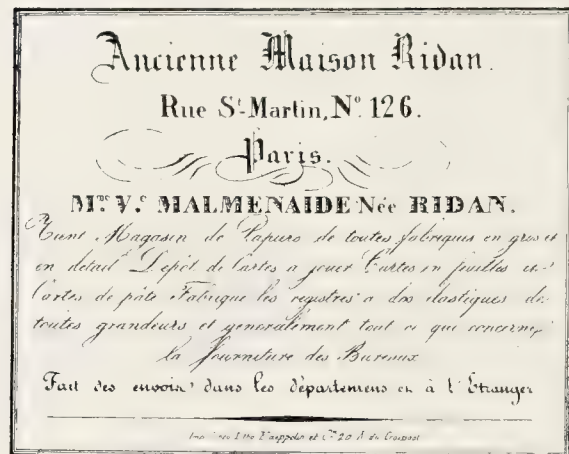 Ancienne Maison Ridan.
Rue St-Martin, No. 126.
Paris.
Mme Ve MALMENAIDE Née RIDAN.
Tient Magasin de Papiers de toutes fabriques en gros et
en détail Dépôt de Cartes a jouer Cartes en feuilles et
Cartes de pâte Fabrique les registres a dos élastiques de
toutes grandeurs et generalement tout ce qui concerne
la fourniture des Bureaux
Fait des envois dans les départemens et à l'Etranger
Litho Kaeppelin et Cie 20 r. du Croissant